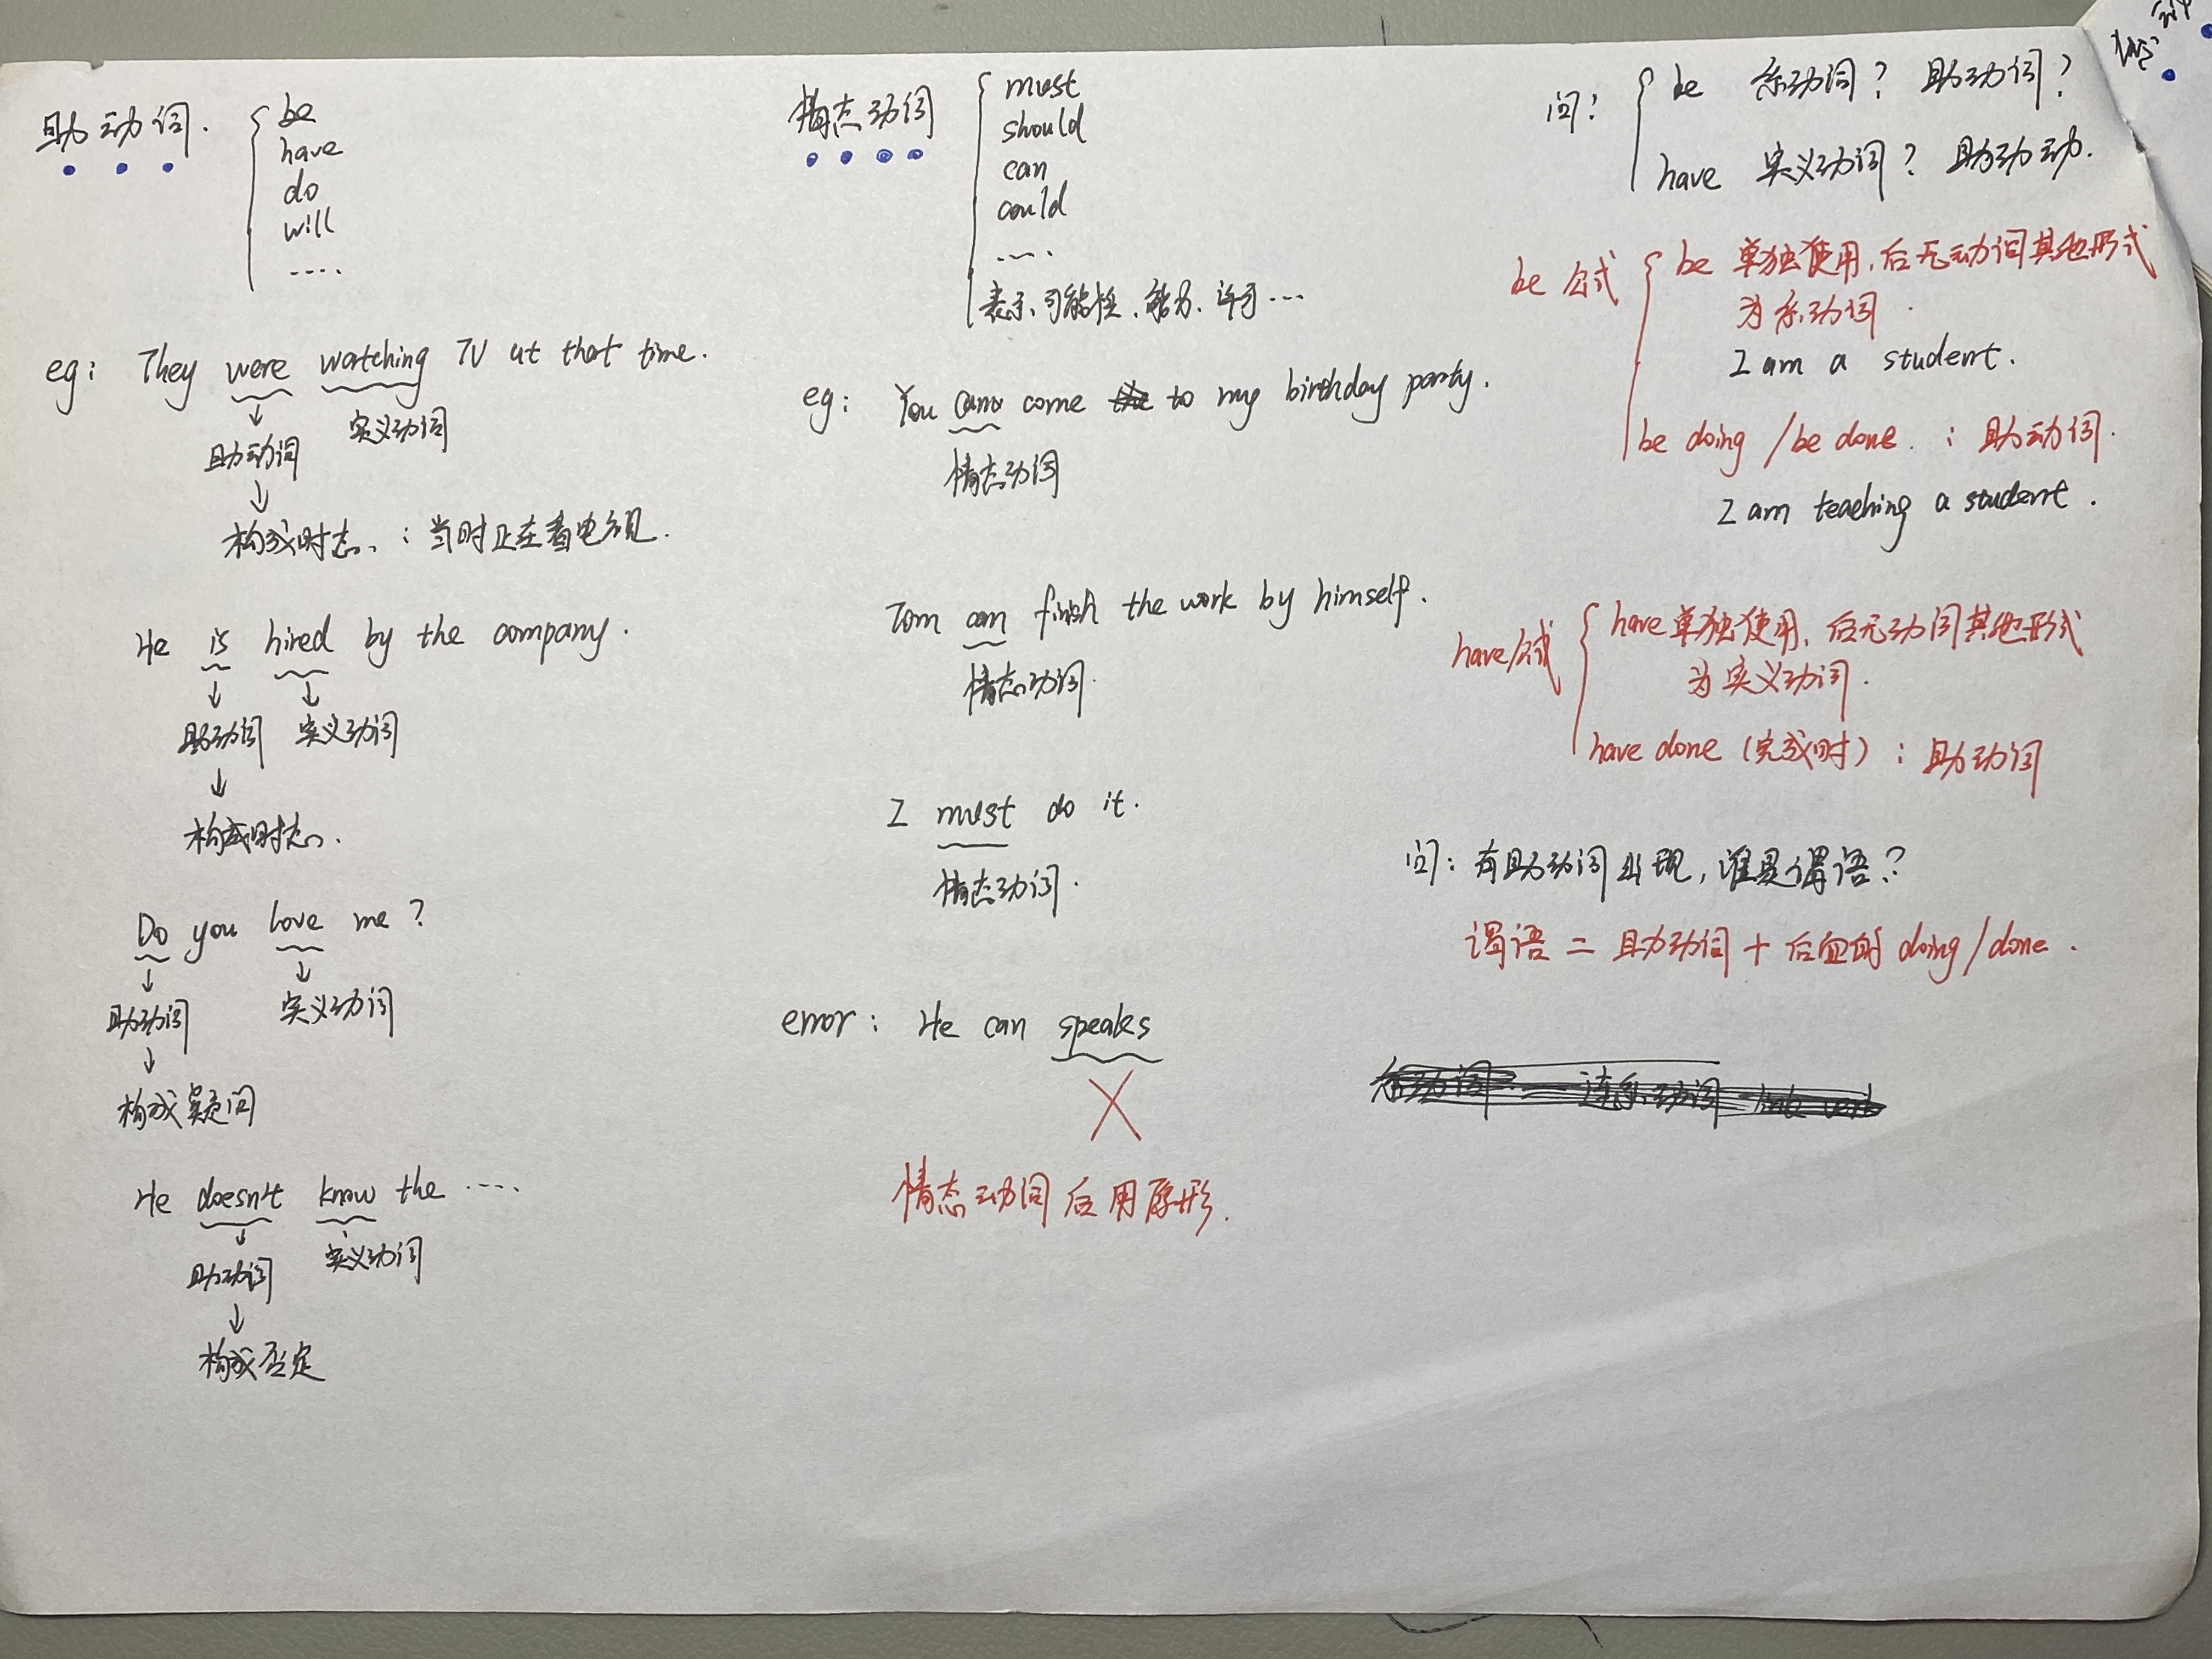 助动词.
be
have
do
will
....
eg: They were watching TV at that time.
助动词 实义动词
构成时态: 当时正在看电视.
He is hired by the company.
助动词 实义动词
构成时态.
Do you love me?
助动词 实义动词
构成疑问
He doesn't know the ....
助动词 实义动词
构成否定
情态动词
must
should
can
could
....
表示可能性、能力、许可...
eg: You can come to my birthday party.
情态动词
Tom can finish the work by himself.
情态动词.
I must do it.
情态动词.
error: He can speaks
情态动词后用原形.
问:
be 系动词? 助动词?
have 实义动词? 助动动.
be 公式
be 单独使用, 后无动词其他形式
为系动词.
I am a student.
be doing / be done. : 助动词.
I am teaching a student.
have公式
have单独使用, 后无动词其他形式
为实义动词.
have done (完成时): 助动词
问: 有助动词出现, 谁是谓语?
谓语 = 助动词 + 后面的 doing/done.